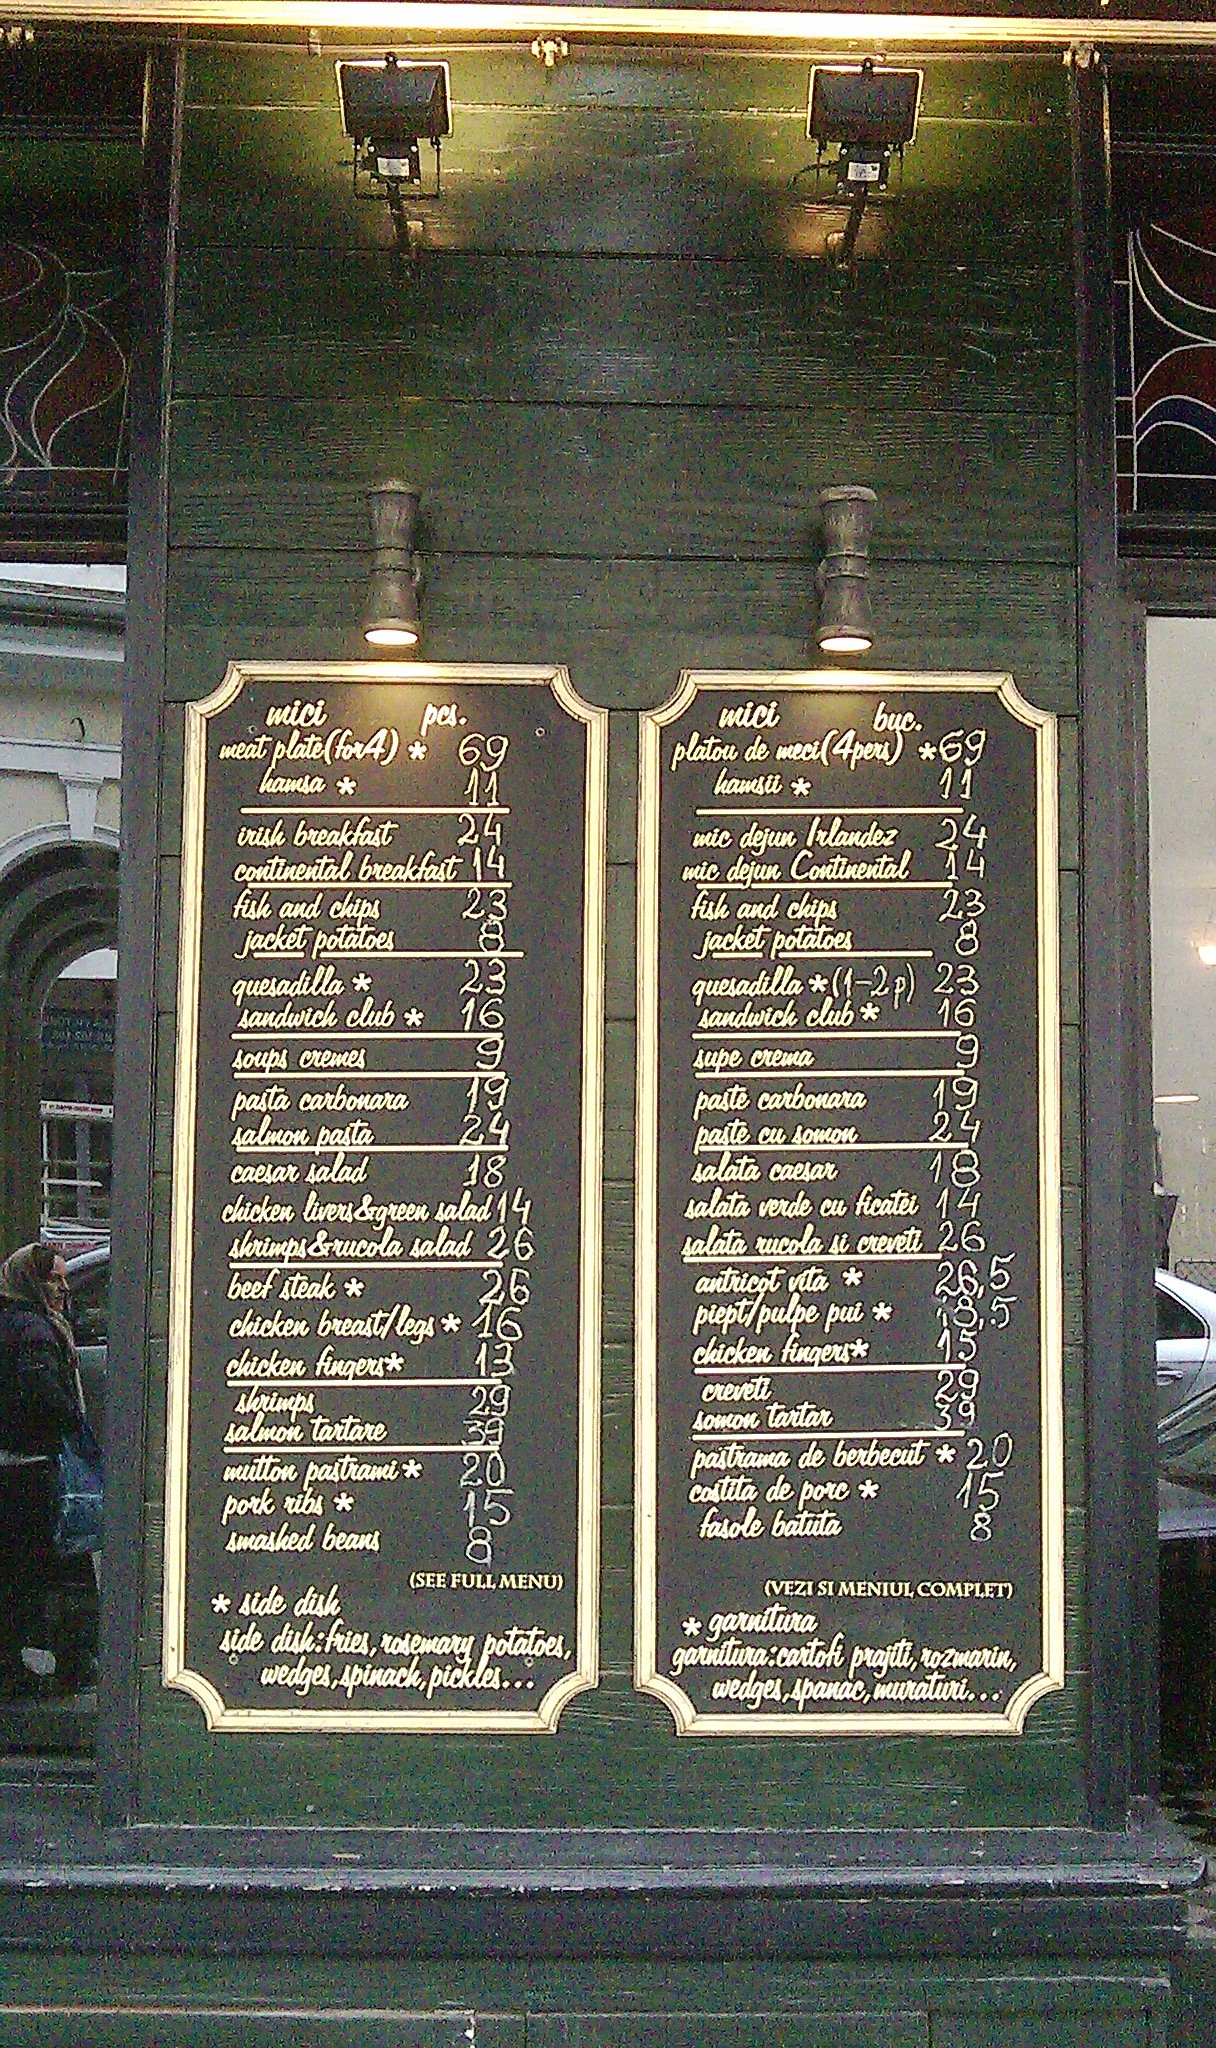 mici pcs.
meat plate(for4) * 69
hamsa * 11
irish breakfast 24
continental breakfast 14
fish and chips 23
jacket potatoes 8
quesadilla * 23
sandwich club * 16
soups cremes 9
pasta carbonara 19
salmon pasta 24
caesar salad 18
chicken livers&green salad 14
shrimps&rucola salad 26
beef steak * 26
chicken breast/legs * 16
chicken fingers* 13
shrimps 29
salmon tartare
mutton pastrami * 20
pork ribs * 15
smashed beans 8
(SEE FULL MENU)
* side dish
side dish:fries,rosemary potatoes,
wedges,spinach,pickles...
mici buc.
platou de meci(4pers) *69
hamsii * 11
mic dejun Irlandez 24
mic dejun Continental 14
fish and chips 23
jacket potatoes 8
quesadilla *(1-2p) 23
sandwich club * 16
supe crema 9
paste carbonara 19
paste cu somon 24
salata caesar 18
salata verde cu ficatei 14
salata rucola si creveti 26
antricot vita * 26,5
piept/pulpe pui *
chicken fingers* 15
creveti 29
somon tartar 39
pastrama de berbecut * 20
costita de porc * 15
fasole batuta 8
(VEZI SI MENIUL COMPLET)
* garnitura
garnitura:cartofi prajiti,rozmarin,
wedges,spanac,muraturi...